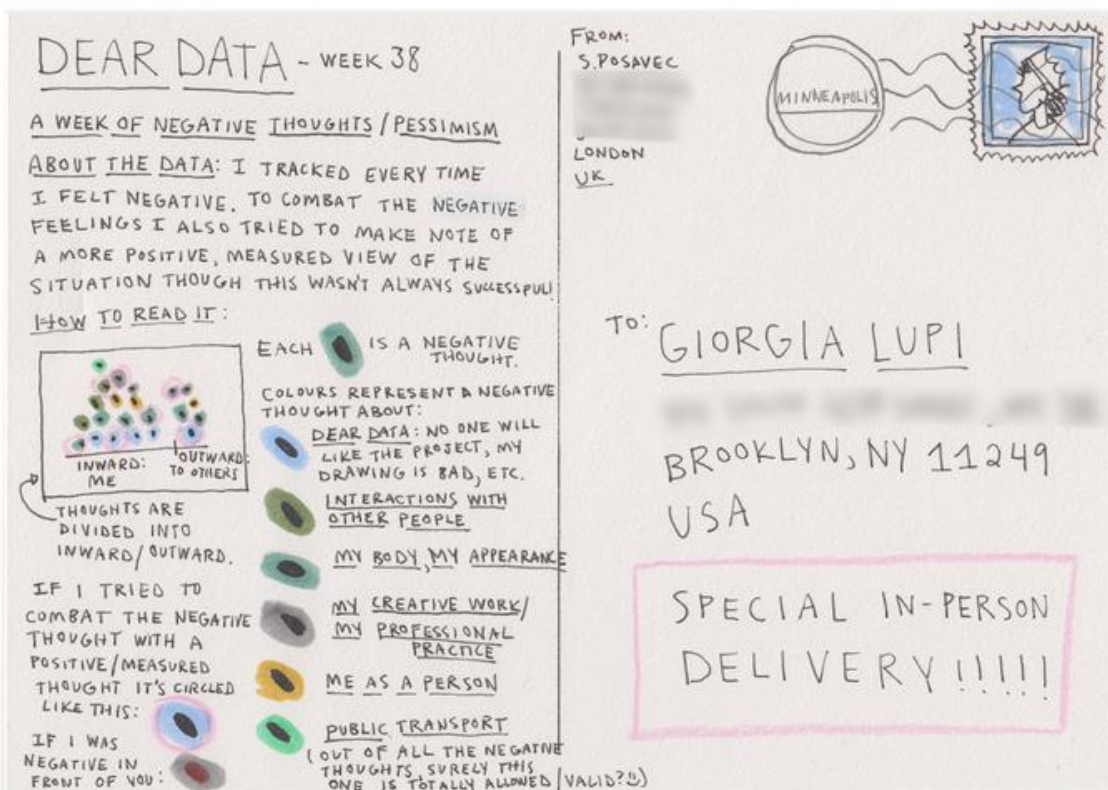 DEAR DATA - WEEK 38
A WEEK OF NEGATIVE THOUGHTS/PESSIMISM
ABOUT THE DATA: I TRACKED EVERY TIME
I FELT NEGATIVE. TO COMBAT THE NEGATIVE
FEELINGS I ALSO TRIED TO MAKE NOTE OF
A MORE POSITIVE, MEASURED VIEW OF THE
SITUATION THOUGH THIS WASN'T ALWAYS SUCCESSFUL!
HOW TO READ IT:
INWARD:
ME
OUTWARD:
TO OTHERS
THOUGHTS ARE
DIVIDED INTO
INWARD/OUTWARD.
IF I TRIED TO
COMBAT THE NEGATIVE
THOUGHT WITH A
POSITIVE/MEASURED
THOUGHT IT'S CIRCLED
LIKE THIS:
IF I WAS
NEGATIVE IN
FRONT OF YOU:
EACH IS A NEGATIVE
THOUGHT.
COLOURS REPRESENT A NEGATIVE
THOUGHT ABOUT:
DEAR DATA: NO ONE WILL
LIKE THE PROJECT, MY
DRAWING IS BAD, ETC.
INTERACTIONS WITH
OTHER PEOPLE
MY BODY, MY APPEARANCE
MY CREATIVE WORK/
MY PROFESSIONAL
PRACTICE
ME AS A PERSON
PUBLIC TRANSPORT
(OUT OF ALL THE NEGATIVE
THOUGHTS, SURELY THIS
ONE IS TOTALLY ALLOWED/VALID?☺)
FROM:
S.POSAVEC
LONDON
UK
MINNEAPOLIS
TO:
GIORGIA LUPI
BROOKLYN, NY 11249
USA
SPECIAL IN-PERSON
DELIVERY!!!!!